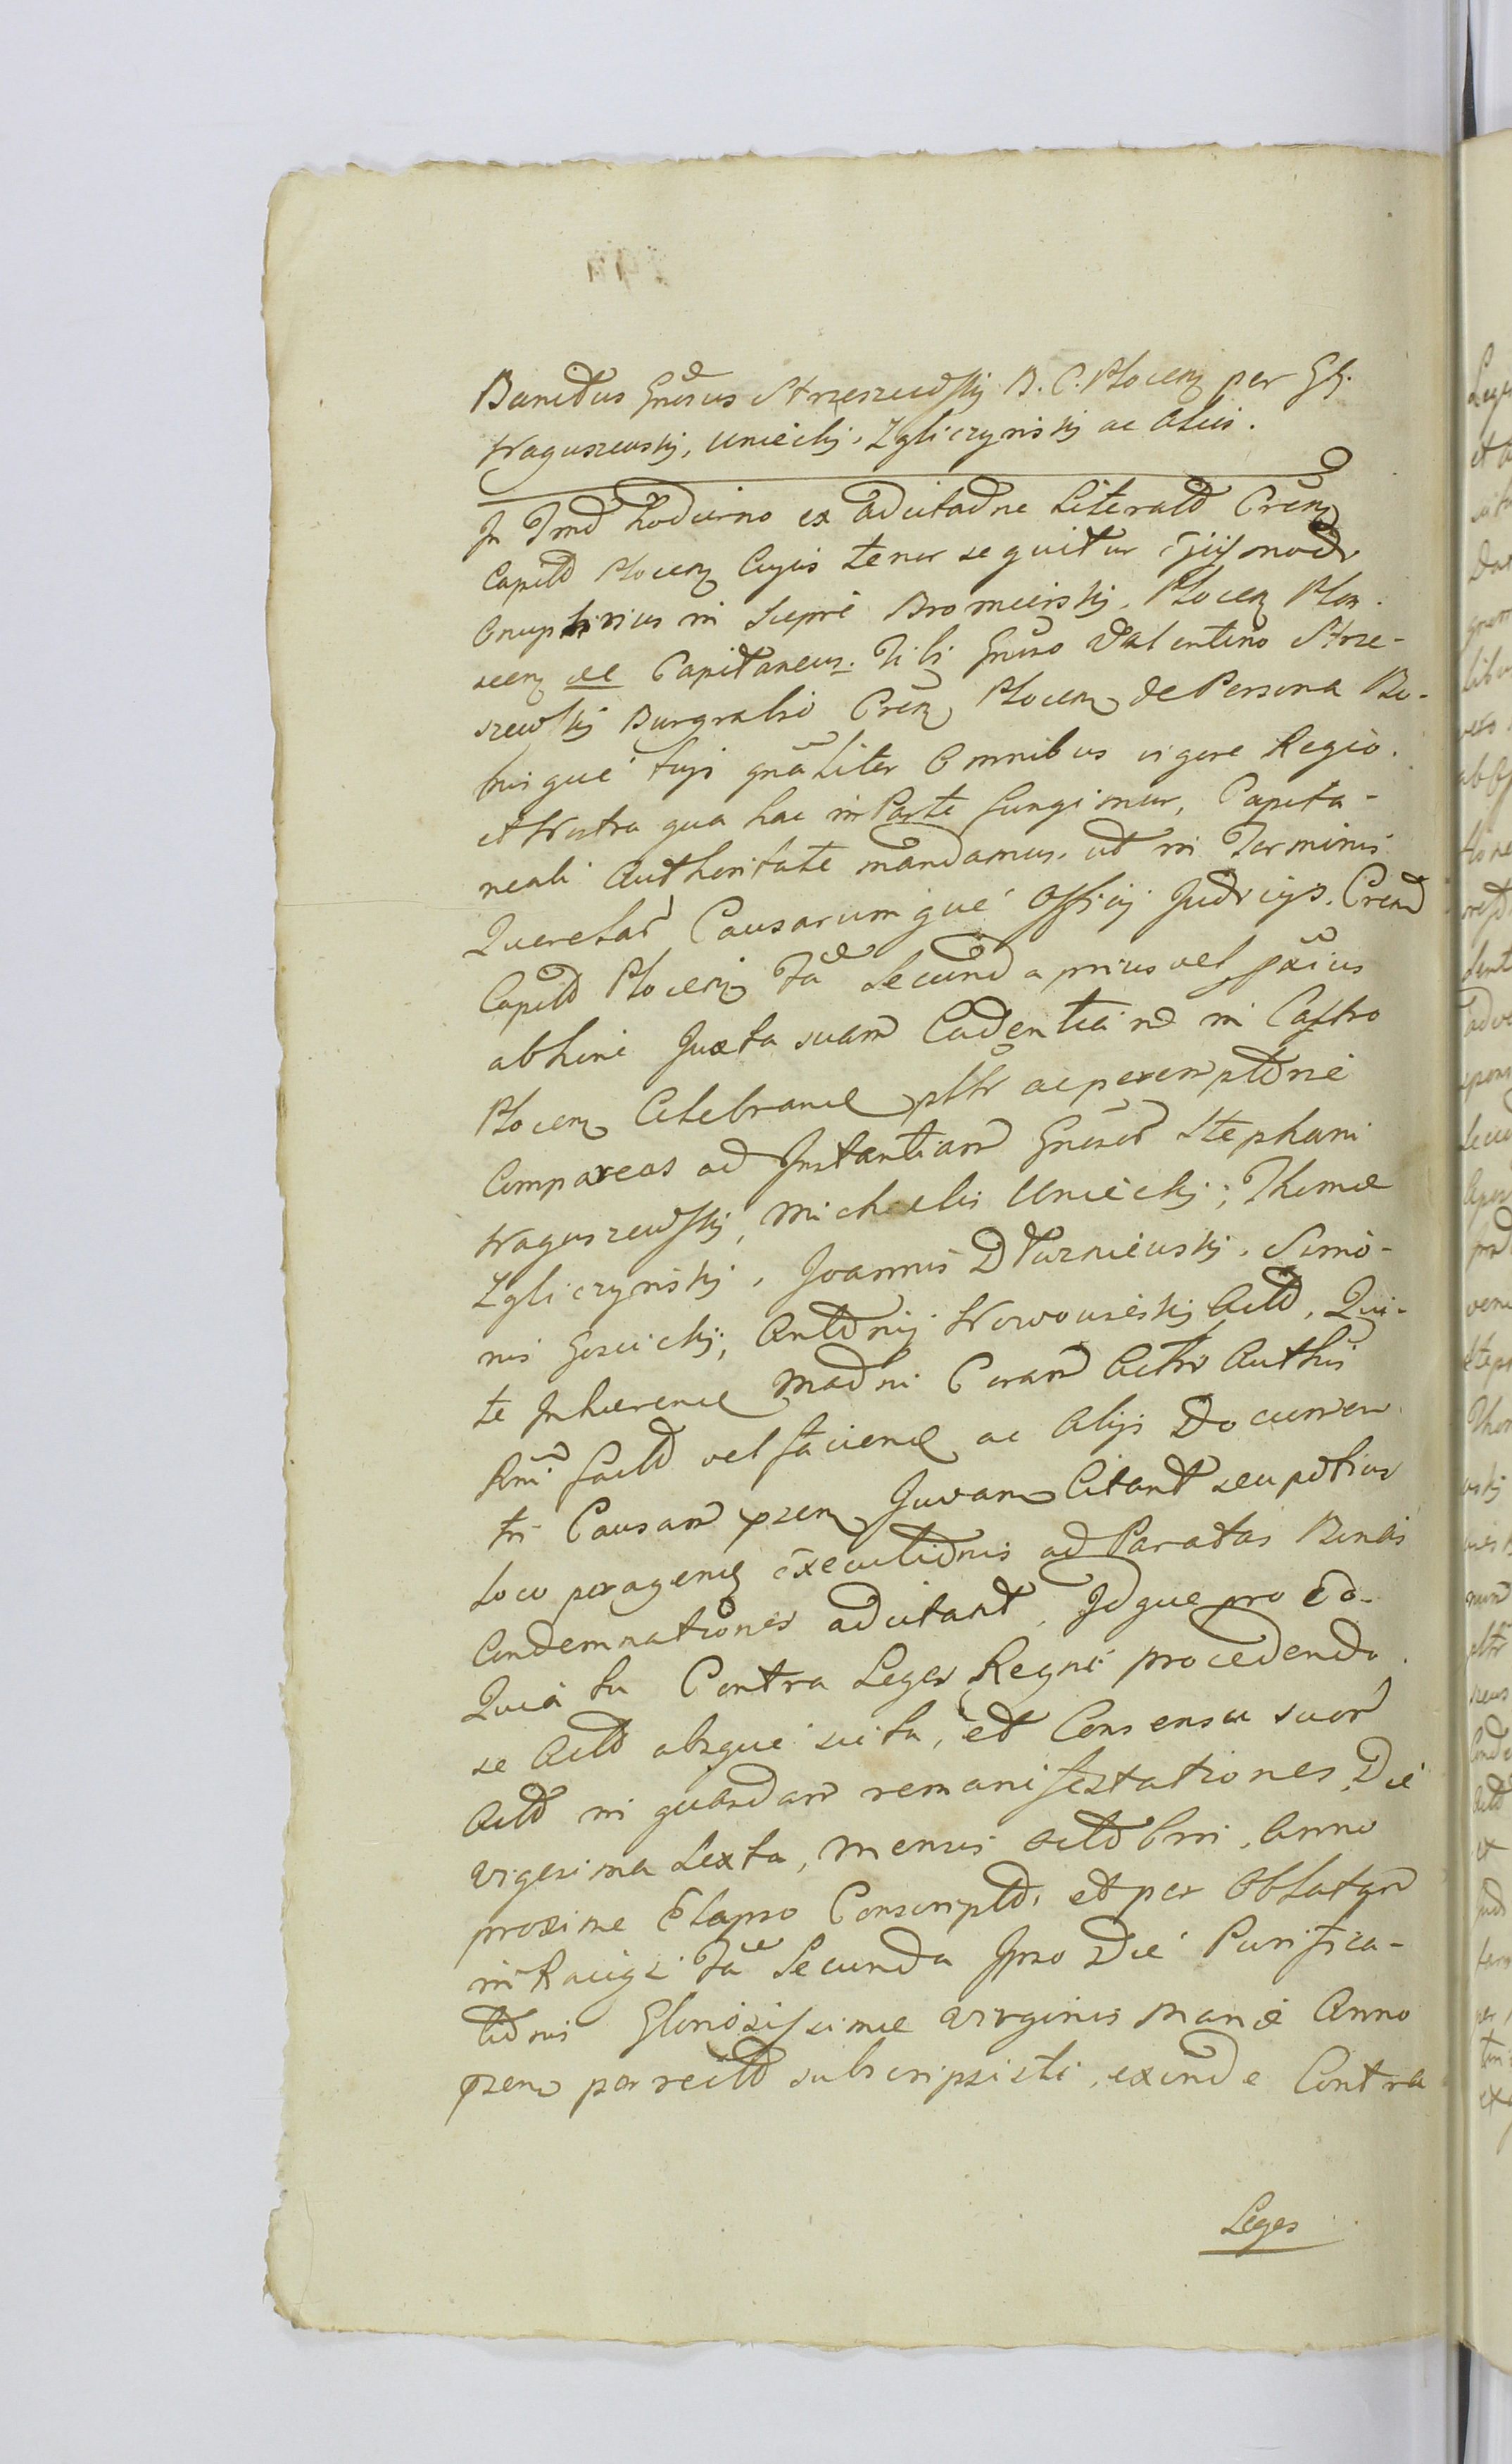 Banitus Gnosus Strzeszewskij B. C. Plocen per GG.
Waguszewskij, Unieckij, Zgliczynskij ac alios.
In Tmo hodierno ex adcitaone Literali Cren
Capitl Plocen Cujus tenor sequitur ejusmodi
Onuphrius in Sieprc Bromierskij, Plocen Plon
scen etc Capitaneus. Tibi Gnoso Valentino Strze-
szewskij Burgrabio Cren Plocen de Persona Bo-
nisque tujs gnaliter Omnibus vigore Regio
et Nostra qua hac in Parte fungimur, Capita-
neali Authoritate mandamus, ut in Terminis
Querelar Causarumque Officij Judicijs. Crend
Capitl Plocen Fa Secunda prius vel
abhinc Juxta suam Cadentiam in Castro
Plocen Celebrand pltr ac peremptorie
Compareas ad Instantiam Gnosor Stephani
Waguszewskij, Michaelis Unieckij, Thomae
Zgliczynskij, Joannis Dturniewskij, Simo-
nis Goscickij, Antonij Nowowieskij Actor, Qui
te Inhaerend Madni Coram Actis Authis
Rni facto vel faciend ac Alijs Documen
tis Causam pzen Juvand Citant seu potius
loco peragend Executionis ad Paratas Binas
Condemnationes adcitant, Idque pro eo.
Quia tu Contra Leges Regni procedendo
se Acto absque scitu, et Consensu suor
Actor in quasdam remanifestationes, Die
vigesima Sexta, Mensis Octobris, Anno
proxime Elapso Conscripto, et per Oblatam
in Raciąz Fa Secunda Ipso Die Purifica-
tionis Gloriosissimae Virginis Mariae Anno
pzen porrecto subscripsisti, exinde Contra
Leges